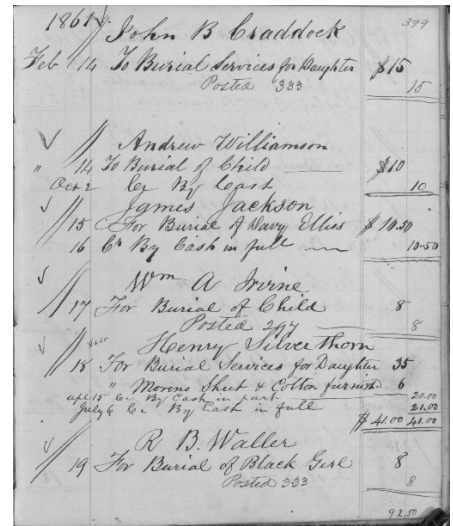 1861 399
John B Craddock
Feb 14 To Burial Services for Daughter $15
Posted 333 15
Andrew Williamson
" 14 To Burial of Child $10
Cr By Cash 10
James Jackson
15 For Burial of Davy Ellis $10.50
16 Cr By Cash in full 10.50
Wm A Irvine
17 For Burial of Child 8
Posted 297 8
Henry Silverthorn
18 For Burial Services for Daughter 35
" Merino Sheet & Cotton furnished 6
apl 15 Cr By Cash in part 20.00
July 6 Cr By Cash in full 21.00
$41.00 41.00
R B. Waller
19 For Burial of Black Girl 8
Posted 333 8
92.50